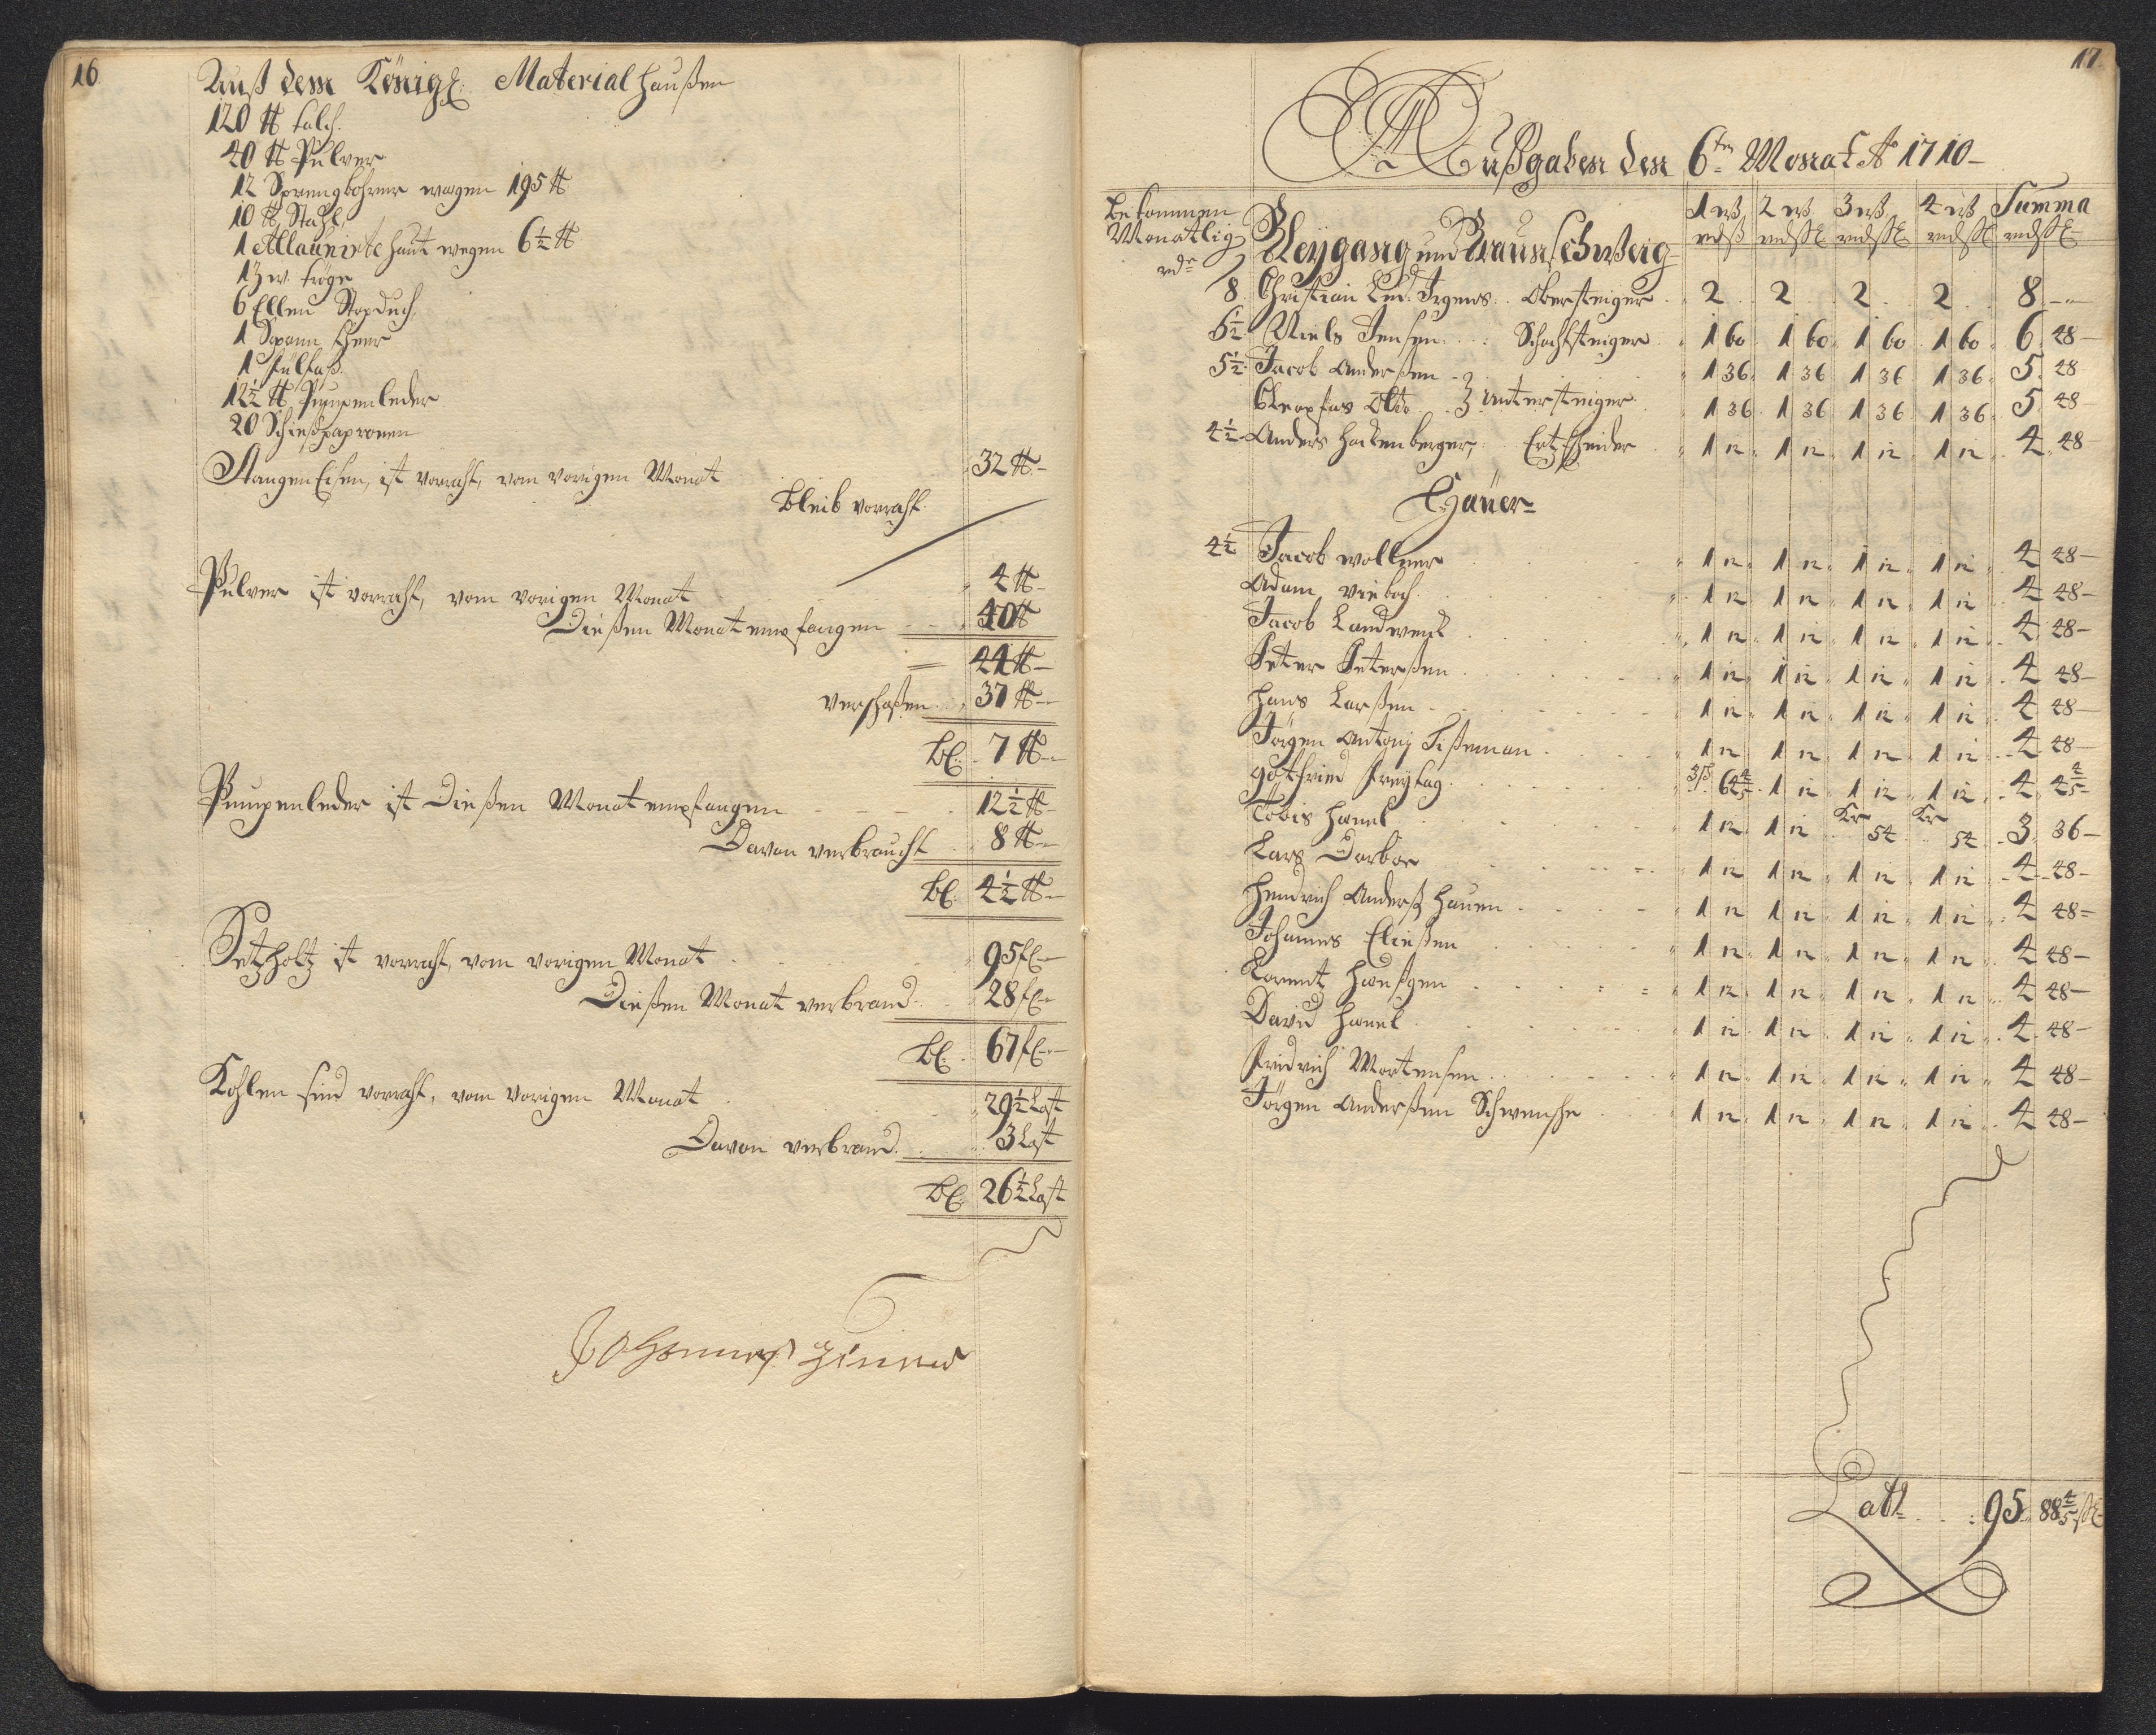 16
Auß dem Königl. Material haußen
120 ℔ talch.
40 ℔ Pulver
12 Sprengbohrer wegen 195 ℔
10 ℔ Stahl
1 Allaunirte haut wegen 6½ ℔
1 Zw. tröge
6 Ellen Stopduch
1 Spann Eÿmer
1 füllfaß
12½ ℔ Pumpenleder
20 Schießpapronen
StangenEisen, ist vorraht, vom vorigen Monat 32 ℔
bleib vorraht.
Pulver ist vorraht, vom vorigen Monat 4 ℔
Dießen Monat empfangen 40 ℔
44 ℔
verschoßen 37 ℔
bl: 7 ℔
Pumpenleder ist Dießen Monat empfangen 12½ ℔
Davon verbraucht 8 ℔
bl: 4½ ℔
Setzholtz ist vorraht, vom vorigen Monat 95 fl
Dießen Monat verbrand 28 fl
bl. 67 fl
Kohlen sind vorraht, vom vorigen Monat 29½ Last
Davon verbrand 3 Last
bl: 26½ Last
Johannes
17
Außgaben den 6ten Monat Ao 1710
bekommen Monatlig rdr
Bleygang und Braunschweig
1 wß 2 wß 3 wß 4 wß Summa
8 Christian Irgens Obersteiger 2 2 2 2 8
6½ Niels Jensen Schachtsteiger 1 60 1 60 1 60 1 60 6 48
5½ Jacob Anderßen 1 36 1 36 1 36 1 36 5 48
Cleophas Untersteiger 1 36 1 36 1 36 1 36 5 48
4½ Anders Hackenberger Ertzscheider 1 12 1 12 1 12 1 12 4 48
Häuer
4½ Jacob wollner 1 12 1 12 1 12 1 12 4 48
Adam viebach 1 12 1 12 1 12 1 12 4 48
Jacob Landwerk 1 12 1 12 1 12 1 12 4 48
Peter Peterßen 1 12 1 12 1 12 1 12 4 48
Hans Larßen 1 12 1 12 1 12 1 12 4 48
Jörgen Antonj Tißeman 1 12 1 12 1 12 1 12 4 48
Gotfried Freytag 3ß 64⅘ 1 12 1 12 1 12 4 4⅘
Tobis Hanel 1 12 1 12 Kr 54 Kr 54 3 36
Lars Dorbor 1 12 1 12 1 12 1 12 4 48
Hendrich Anderß Hauen 1 12 1 12 1 12 1 12 4 48
Johannes Eließen 1 12 1 12 1 12 1 12 4 48
Lorentz Hanßgen 1 12 1 12 1 12 1 12 4 48
David Hanel 1 12 1 12 1 12 1 12 4 48
Fridrich Mortensen 1 12 1 12 1 12 1 12 4 48
Jörgen Anderßen Schwensche 1 12 1 12 1 12 1 12 4 48
Latt 95 88⅘ ßl